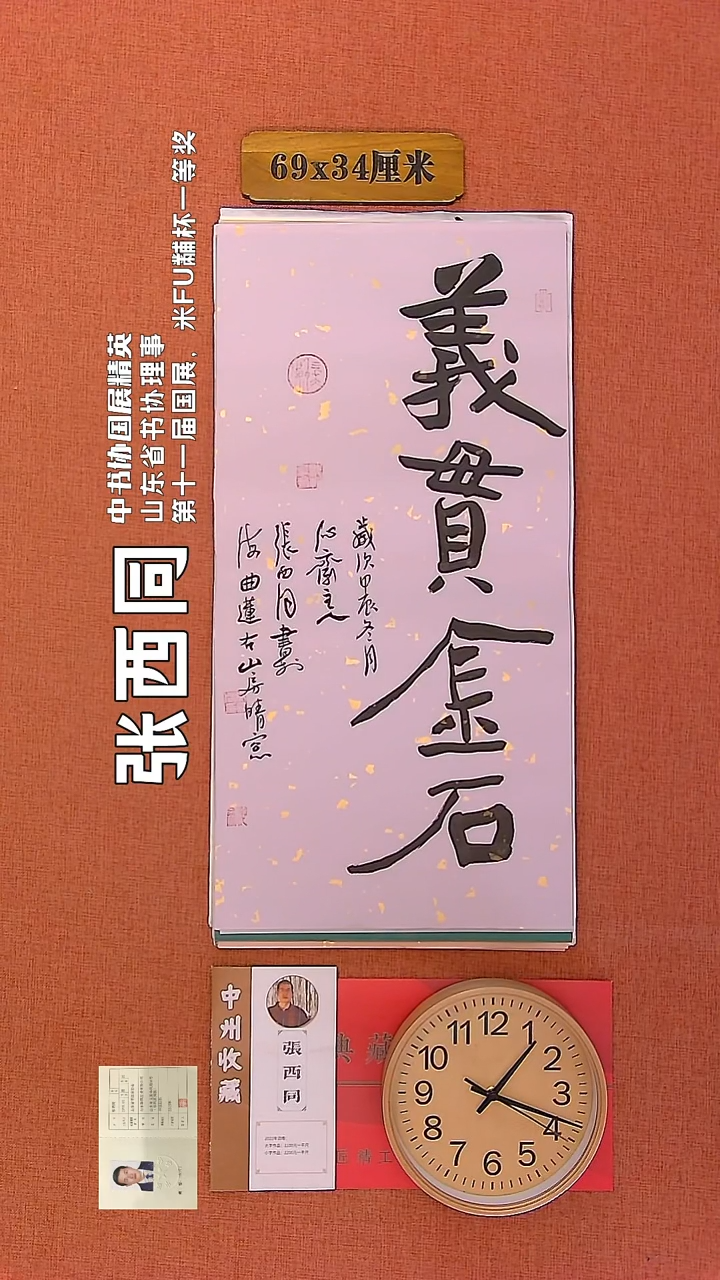 69x34厘米
義貫金石
歲次甲辰冬月
心齋主人
張西同書於
海曲蓮右山房晴窓
张西同
中书协国展精英
山东省书协理事
第十一届国展，米FU黼杯一等奖
中美收藏
張西同
典藏
12
1
2
3
4
5
6
7
8
9
10
11